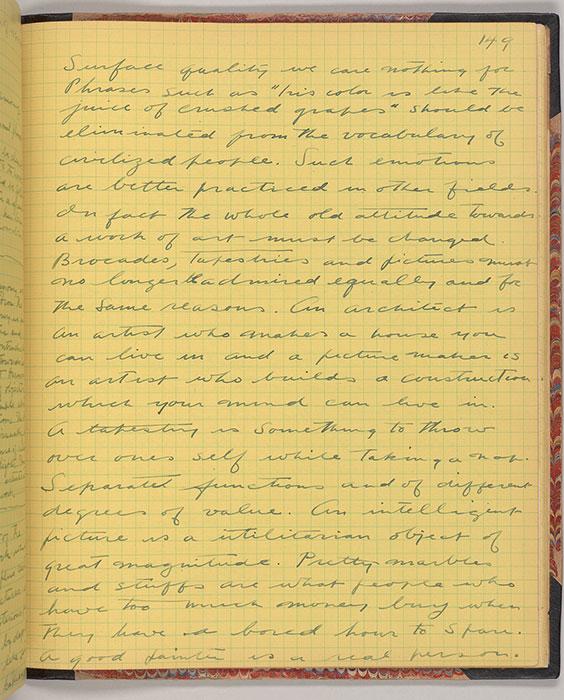 149
Surface quality we care nothing for
Phrases such as "his color is like the
juice of crushed grapes" should be
eliminated from the vocabulary of
civilized people. Such emotions
are better practiced in other fields.
In fact the whole old attitude towards
a work of art must be changed.
Brocades, tapestries and pictures must
no longer be admired equally and for
the same reasons. An architect is
an artist who makes a house you
can live in and a picture maker is
an artist who builds a construction
which your mind can live in.
A tapestry is something to throw
over ones self while taking a nap.
Separate functions and of different
degrees of value. An intelligent
picture is a utilitarian object of
great magnitude. Pretty marbles
and stuffs are what people who
have too much money buy when
they have a bored hour to spare.
A good painter is a real person.